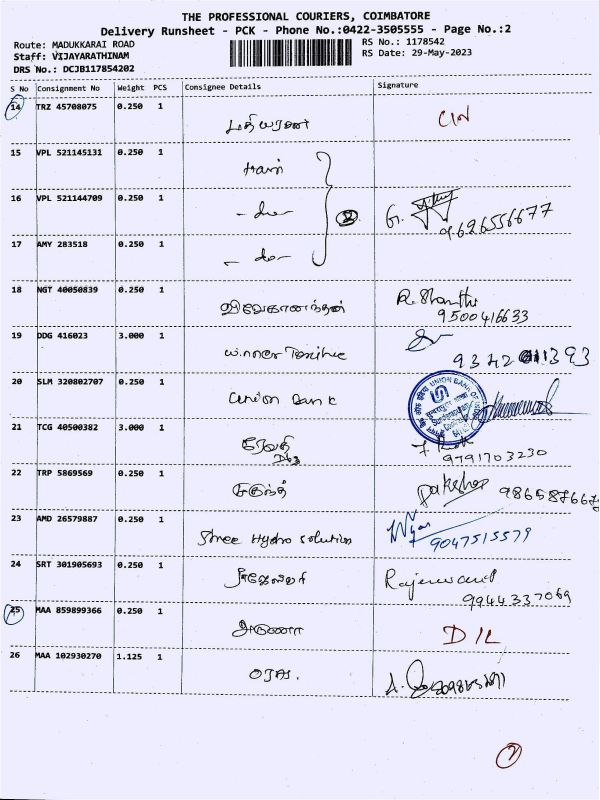 THE PROFESSIONAL COURIERS, COIMBATORE
Delivery Runsheet - PCK - Phone No.:0422-3505555 - Page No.:2
Route: MADUKKARAI ROAD
RS No.: 1178542
Staff: VIJAYARATHINAM
RS Date: 29-May-2023
DRS No.: DCJB117854202
S No Consignment No Weight PCS Consignee Details Signature
14 TRZ 45708075 0.250 1
15 VPL 521145131 0.250 1
16 VPL 521144709 0.250 1 - do -
9626556677
17 AMY 283518 0.250 1 - do -
18 NGT 40050839 0.250 1 விவேகானந்தன் R. Shanthi
9500416633
19 DDG 416023 3.000 1 Winner
20 SLM 320802707 0.250 1 Union Bank
UNION BANK OF
21 TCG 40500382 3.000 1 ரேவதி
9791703230
22 TRP 5869569 0.250 1
23 AMD 26579887 0.250 1 Shree Hydro Solutions
9047515579
24 SRT 301905693 0.250 1
9944337069
25 MAA 859899366 0.250 1 அருணா D/L
26 MAA 102930270 1.125 1